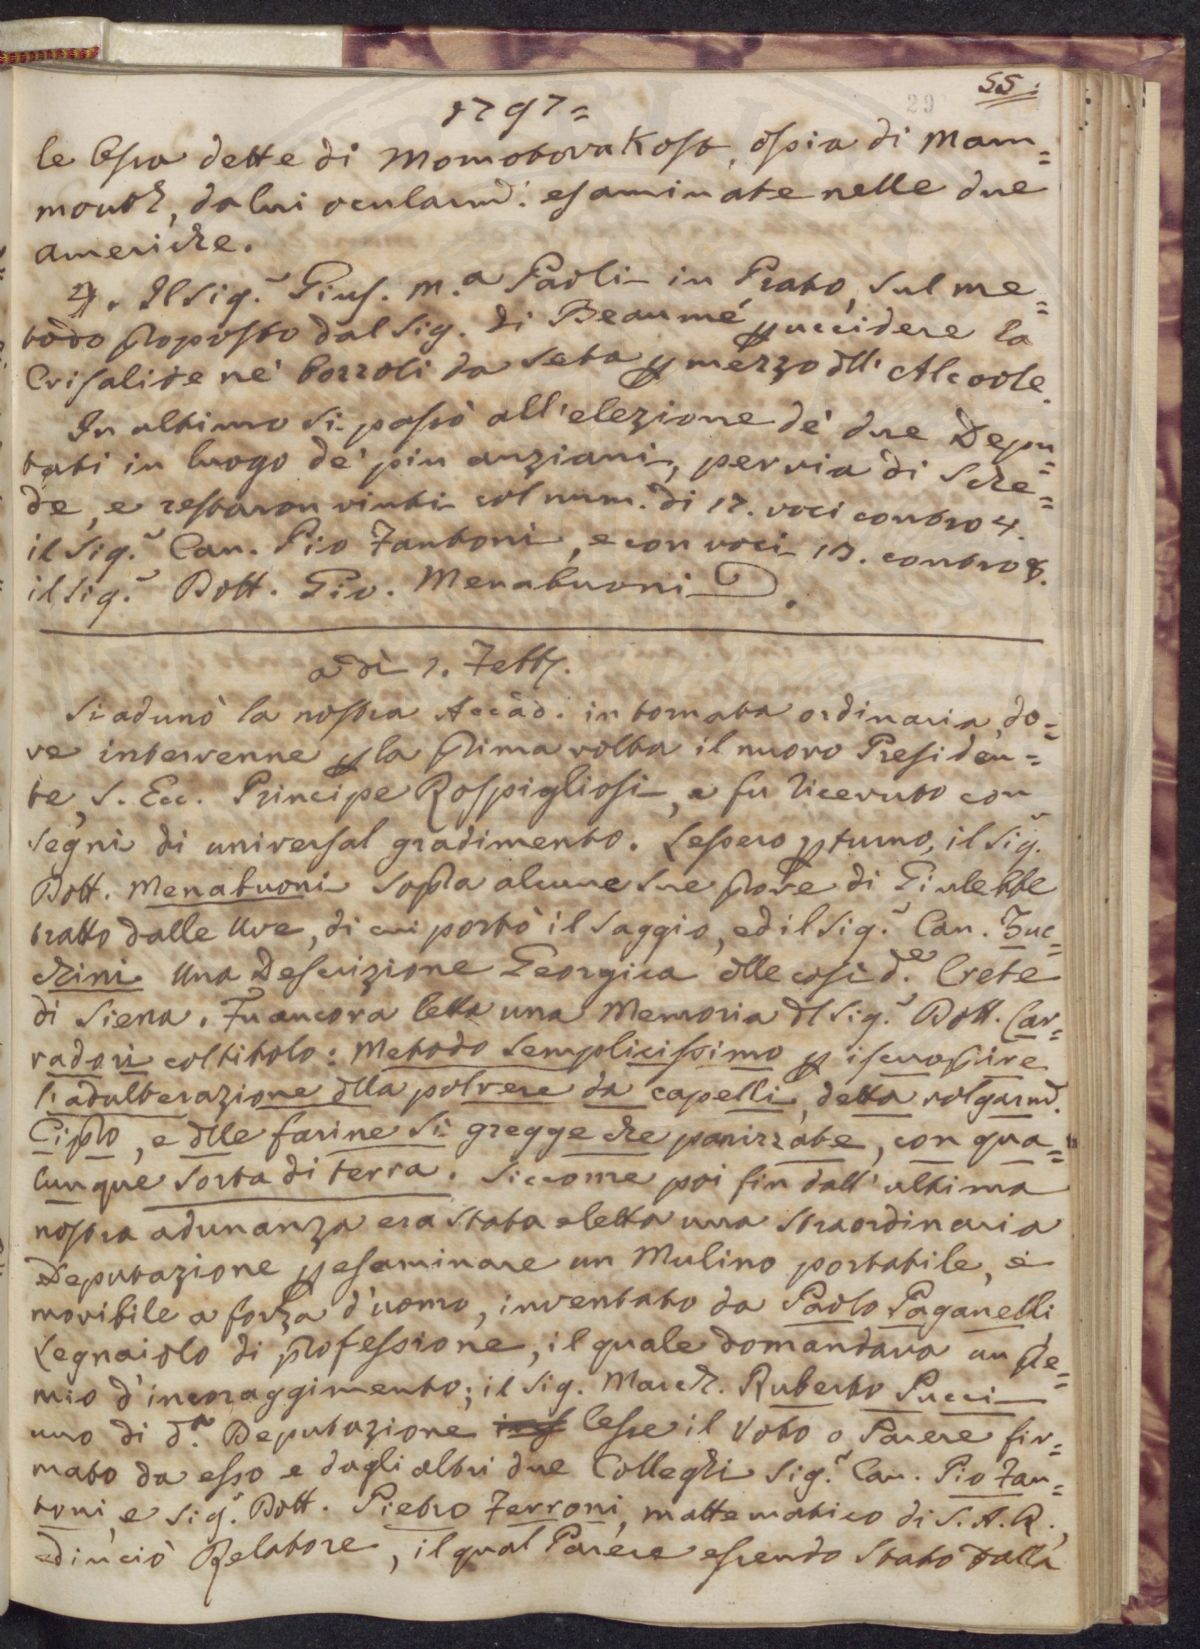 55.
29
1797=
le Ossa dette di Momotova Kost, ossia di Mam=
mouth, da lui ocularmd. esaminate nelle due
americhe.
4. Il Sig.r Gius. M.a Paoli in Prato, sul me=
todo proposto dal Sig. di Beaumé p uccidere la
Crisalide ne' bozzoli da seta p mezzo dll' Alcoole.
In ultimo si passò all'elezione de' due Depu=
tati in luogo de' più anziani, per via di Sche=
de, e restaron vinti col num. di 17. voci contro 4.
il Sig.r Can. Pio Fantoni, e con voci 13. contro 8.
il Sig.r Dott. Gio. Menabuoni.
adì 1. Febb.
Si adunò la nostra Accad. in tornata ordinaria, do=
ve intervenne p la prima volta il nuovo Presiden=
te, S. Ecc. Principe Rospigliosi, e fu ricevuto con
segni di universal gradimento. Lessero p turno, il Sig.r
Dott. Menabuoni sopra alcune sue prove di Giulebbe
tratto dalle Uve, di cui portò il Saggio, ed il Sig.r Can. Zuc=
chini una Descrizione Georgica dlle così d.e Crete
di Siena. Fu ancora letta una Memoria dl Sig.r Dott. Car=
radori col titolo: Metodo semplicissimo p iscuoprire
l'adulterazione dlla polvere da capelli, detta volgarmd.
Cipro, e dlle farine sì gregge che panizzate, con qua=
lunque sorta di terra. Siccome poi fin dall'ultima
nostra adunanza era stata eletta una straordinaria
Deputazione p esaminare un Mulino portatile, e
movibile a forza d'uomo, inventato da Paolo Paganelli
Legnaiolo di professione, il quale domandava un pre=
mio d'incoraggimento; il Sig. March. Ruberto Pucci
uno di d.a Deputazione lesse il Voto o Parere fir=
mato da esso e dagli altri due Colleghi Sig.r Can. Pio Fan=
toni, e Sig.r Dott. Pietro Ferroni, mattematico di S.A.R.,
e di ciò Relatore, il qual Parere essendo stato dalla